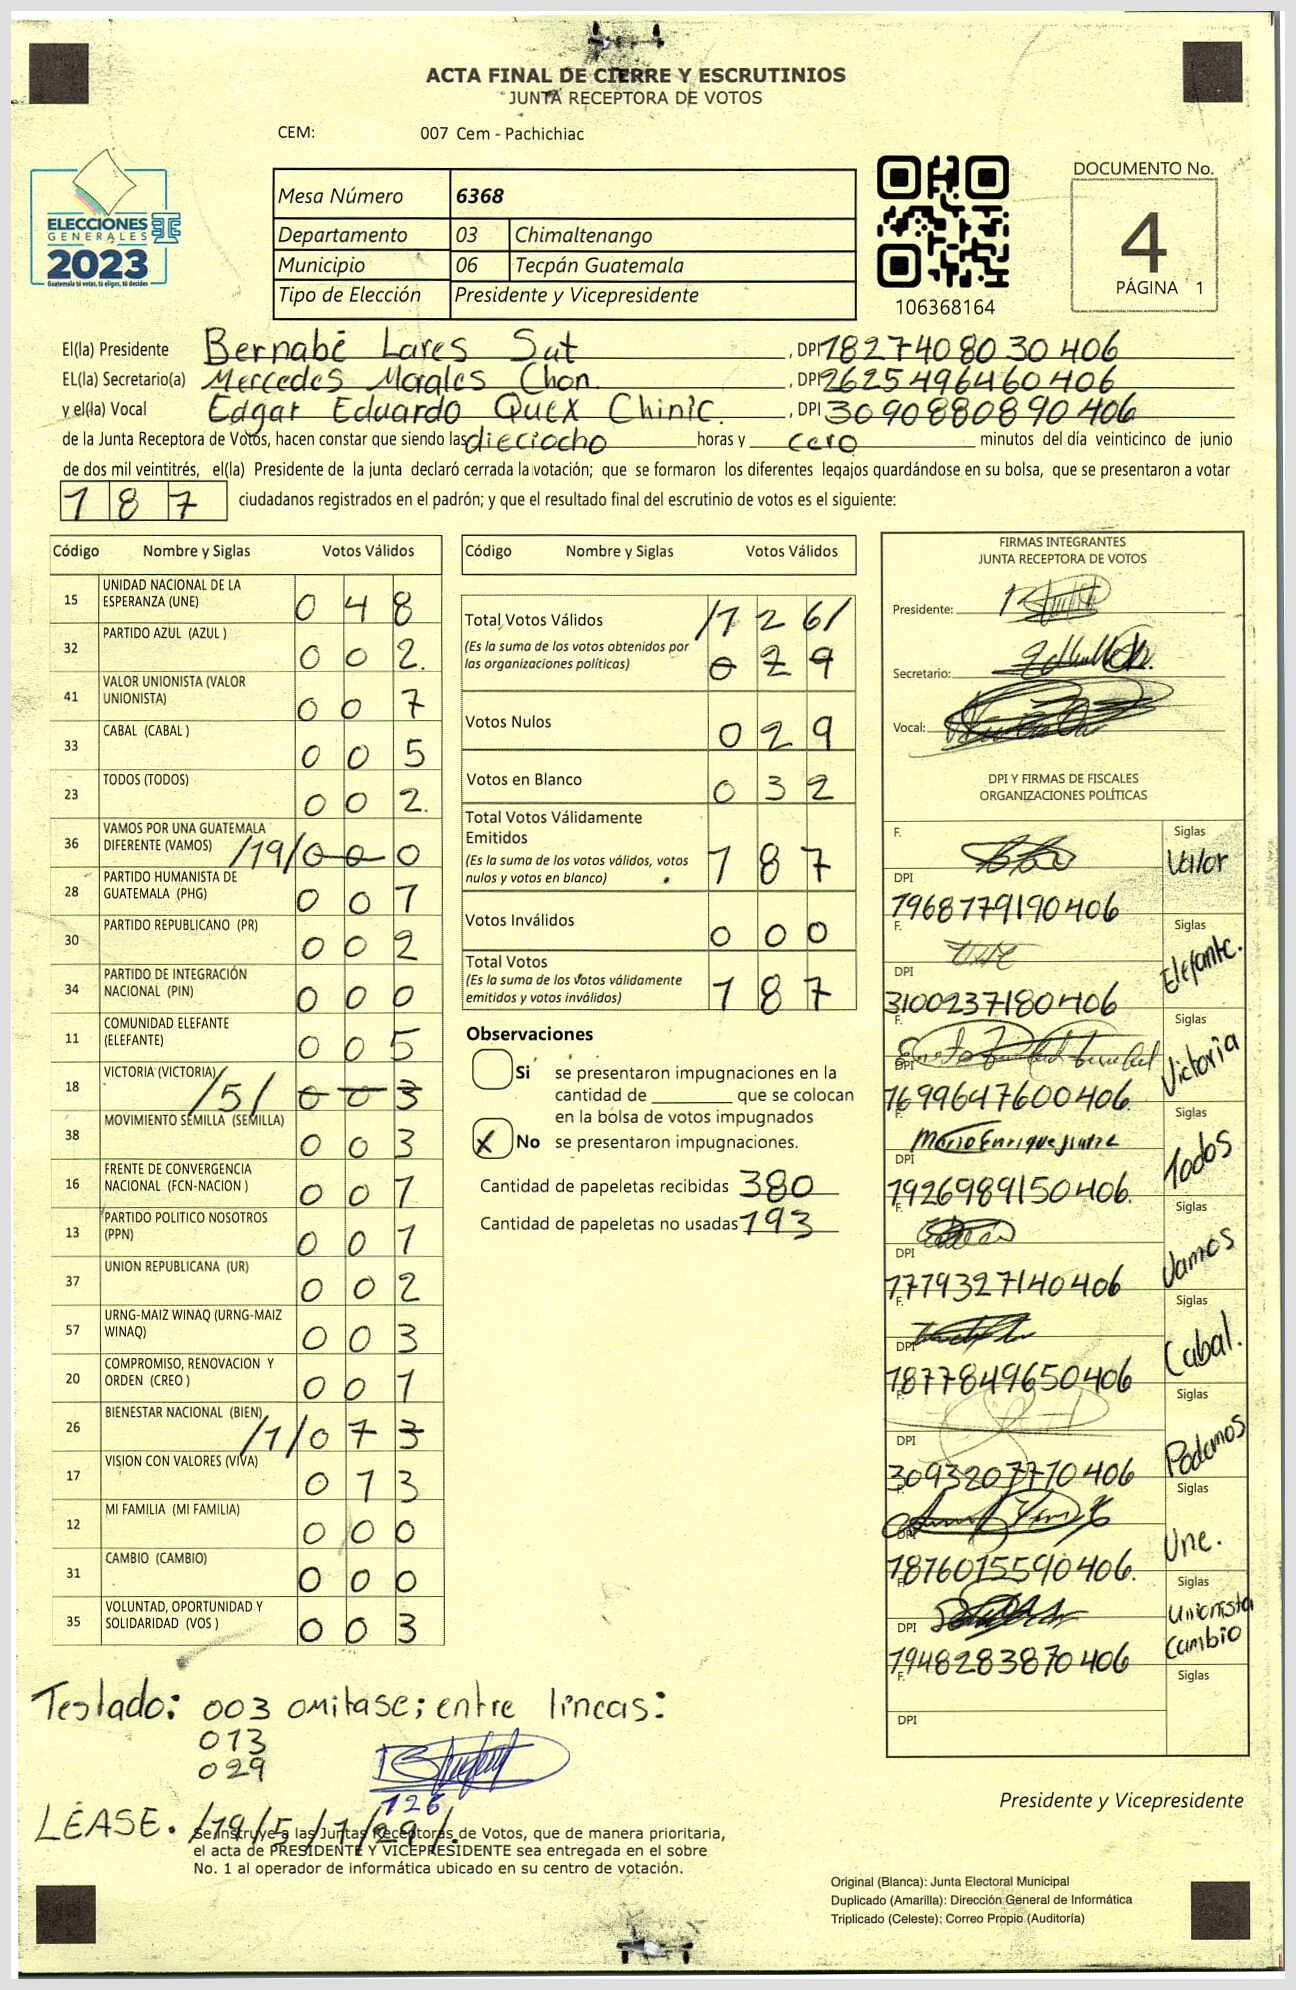 ACTA FINAL DE CIERRE Y ESCRUTINIOS
JUNTA RECEPTORA DE VOTOS
CEM: 007 Cem - Pachichiac
ELECCIONES
GENERALES
2023
Guatemala tú votas, tú eliges, tú decides
Mesa Número 6368
Departamento 03 Chimaltenango
Municipio 06 Tecpán Guatemala
Tipo de Elección Presidente y Vicepresidente
106368164
DOCUMENTO No.
4
PÁGINA 1
El(la) Presidente Bernabé Lares Sut , DPI 1827408030406
EL(la) Secretario(a) Mercedes Morales Chon. , DPI 2625496460406
y el(la) Vocal Edgar Eduardo Quex Chinic. , DPI 3090880890406
de la Junta Receptora de Votos, hacen constar que siendo las dieciocho horas y cero minutos del día veinticinco de junio
de dos mil veintitrés, el(la) Presidente de la junta declaró cerrada la votación; que se formaron los diferentes legajos guardándose en su bolsa, que se presentaron a votar
187 ciudadanos registrados en el padrón; y que el resultado final del escrutinio de votos es el siguiente:
Código Nombre y Siglas Votos Válidos
15 UNIDAD NACIONAL DE LA ESPERANZA (UNE) 048
32 PARTIDO AZUL (AZUL ) 002.
41 VALOR UNIONISTA (VALOR UNIONISTA) 007
33 CABAL (CABAL ) 005
23 TODOS (TODOS) 002.
36 VAMOS POR UNA GUATEMALA DIFERENTE (VAMOS) /19/ 000
28 PARTIDO HUMANISTA DE GUATEMALA (PHG) 001
30 PARTIDO REPUBLICANO (PR) 002
34 PARTIDO DE INTEGRACIÓN NACIONAL (PIN) 000
11 COMUNIDAD ELEFANTE (ELEFANTE) 005
18 VICTORIA (VICTORIA) /5/ 003
38 MOVIMIENTO SEMILLA (SEMILLA) 003
16 FRENTE DE CONVERGENCIA NACIONAL (FCN-NACION ) 001
13 PARTIDO POLITICO NOSOTROS (PPN) 001
37 UNION REPUBLICANA (UR) 002
57 URNG-MAIZ WINAQ (URNG-MAIZ WINAQ) 003
20 COMPROMISO, RENOVACION Y ORDEN (CREO ) 001
26 BIENESTAR NACIONAL (BIEN) /1/ 013
17 VISION CON VALORES (VIVA) 013
12 MI FAMILIA (MI FAMILIA) 000
31 CAMBIO (CAMBIO) 000
35 VOLUNTAD, OPORTUNIDAD Y SOLIDARIDAD (VOS ) 003
Código Nombre y Siglas Votos Válidos
Total Votos Válidos /126/
(Es la suma de los votos obtenidos por
las organizaciones políticas) 029
Votos Nulos 029
Votos en Blanco 032
Total Votos Válidamente
Emitidos
(Es la suma de los votos válidos, votos
nulos y votos en blanco) 187
Votos Inválidos 000
Total Votos
(Es la suma de los votos válidamente
emitidos y votos inválidos) 187
Observaciones
Si se presentaron impugnaciones en la
cantidad de ________ que se colocan
en la bolsa de votos impugnados
X No se presentaron impugnaciones.
Cantidad de papeletas recibidas 380
Cantidad de papeletas no usadas 193
FIRMAS INTEGRANTES
JUNTA RECEPTORA DE VOTOS
Presidente:
Secretario:
Vocal:
DPI Y FIRMAS DE FISCALES
ORGANIZACIONES POLÍTICAS
F. Siglas Valor
DPI 1968779190406
F. Siglas Elefante.
DPI 3100237180406
F. Siglas Victoria
DPI 1699647600406.
F. Mario Enrique Siglas Todos
DPI 1926989150406.
F. Siglas Vamos
DPI 1779327140406
F. Siglas Cabal.
DPI 1877849650406
F. Siglas Podemos
DPI 3093207770406
F. Siglas Une.
DPI 1876015590406.
F. Siglas Unionista
Cambio
DPI 1948283870406
F. Siglas
DPI
Testado: 003 omitase; entre lineas:
013
029
126
LÉASE. /19/5/1/29/.
Se instruye a las Juntas Receptoras de Votos, que de manera prioritaria,
el acta de PRESIDENTE Y VICEPRESIDENTE sea entregada en el sobre
No. 1 al operador de informática ubicado en su centro de votación.
Presidente y Vicepresidente
Original (Blanca): Junta Electoral Municipal
Duplicado (Amarilla): Dirección General de Informática
Triplicado (Celeste): Correo Propio (Auditoría)